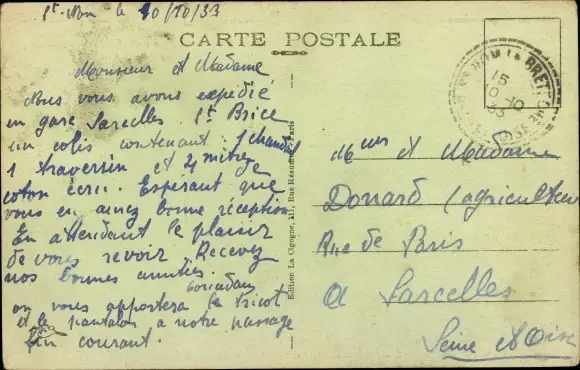 St-Nom le 10/10/33
CARTE POSTALE
Monsieur et Madame
Nous vous avons expédié
en gare Sarcelles. St Brice
un colis contenant : 1 chandail
1 traversin et 4 mètres
coton écru. Espérant que
vous en aurez bonne réception
En attendant le plaisir
de vous revoir. Recevez
nos bonnes amitiés.
on vous apportera le tricot
et le pantalon à notre passage
fin courant.
Edition La Cigogne, 111, Rue Réaumur, Paris
ST NOM LA BRETECHE
15
10-10
33
SEINE ET OISE
Meur et Madame
Donard (agriculteur
Rue de Paris
à Sarcelles
Seine et Oise